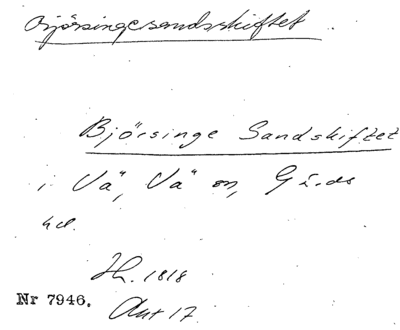 Björsingesandskiftet
Björsinge Sandskiftet
i Vä, Vä sn, Gärds
hd.
Jb. 1818
Nr 7946. Akt 17.